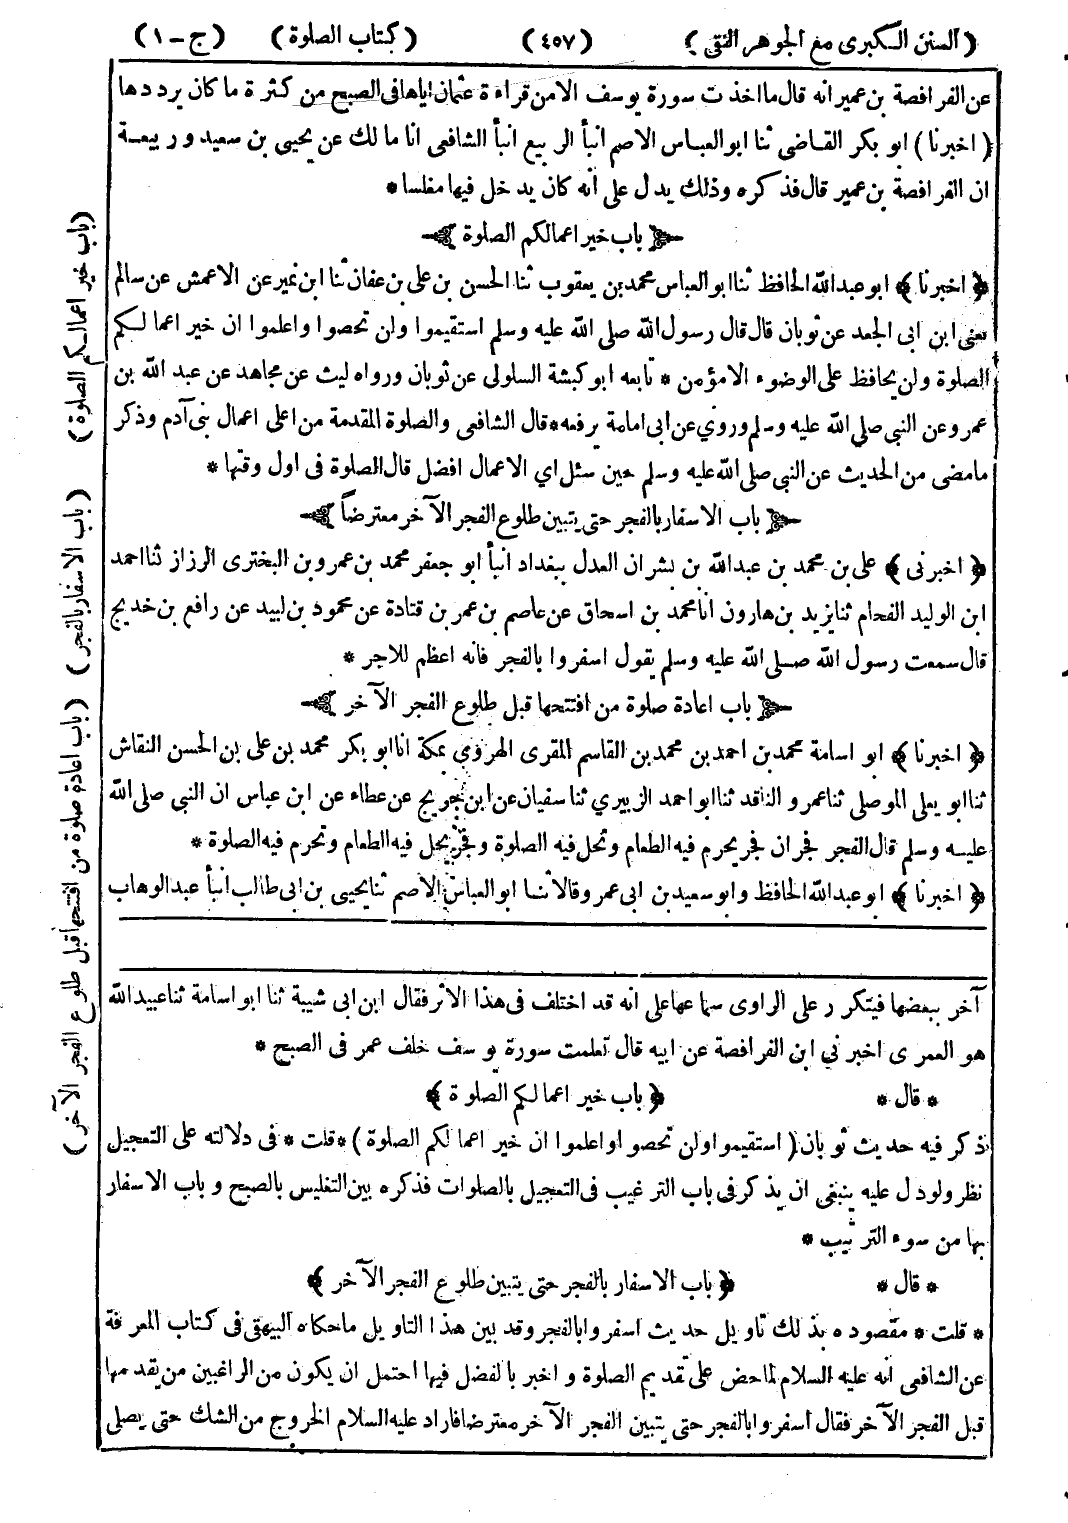 (السنن الكبرى مع الجوهر النقي) (٤٥٧) (كتاب الصلوة) (ج-١)
عن الفرافصة بن عمير انه قال ما اخذت سورة يوسف الا من قراءة عثمان اياها في الصبح من كثرة ما كان يرددها
(اخبرنا) ابو بكر القاضى ثنا ابو العباس الاصم انبأ الربيع انبأ الشافعى انا مالك عن يحيى بن سعيد وربيعة
ان الفرافصة بن عمير قال فذكره وذلك يدل على انه كان يدخل فيها مغلسا *
﴿باب خير اعمالكم الصلوة﴾
﴿اخبرنا﴾ ابو عبد الله الحافظ ثنا ابو العباس محمد بن يعقوب ثنا الحسن بن على بن عفان ثنا ابن نمير عن الاعمش عن سالم
يعنى ابن ابى الجعد عن ثوبان قال قال رسول الله صلى الله عليه وسلم استقيموا ولن تحصوا واعلموا ان خير اعمالكم
الصلوة ولن يحافظ على الوضوء الا مؤمن * تابعه ابو كبشة السلولى عن ثوبان ورواه ليث عن مجاهد عن عبد الله بن
عمرو عن النبي صلى الله عليه وسلم وروي عن ابى امامة يرفعه * قال الشافعى والصلوة المقدمة من اعلى اعمال بنى آدم وذكر
ما مضى من الحديث عن النبي صلى الله عليه وسلم حين سئل اي الاعمال افضل قال الصلوة فى اول وقتها *
﴿باب الاسفار بالفجر حتى يتبين طلوع الفجر الآخر معترضاً﴾
﴿اخبرنى﴾ على بن محمد بن عبد الله بن بشران العدل ببغداد انبأ ابو جعفر محمد بن عمرو بن البخترى الرزاز ثنا احمد
ابن الوليد الفحام ثنا يزيد بن هارون انا محمد بن اسحاق عن عاصم بن عمر بن قتادة عن محمود بن لبيد عن رافع بن خديج
قال سمعت رسول الله صلى الله عليه وسلم يقول اسفروا بالفجر فانه اعظم للاجر *
﴿باب اعادة صلوة من افتتحها قبل طلوع الفجر الآخر﴾
﴿اخبرنا﴾ ابو اسامة محمد بن احمد بن محمد بن القاسم المقرى الهروي بمكة انا ابو بكر محمد بن على بن الحسن النقاش
ثنا ابو يعلى الموصلى ثنا عمرو الناقد ثنا ابو احمد الزبيري ثنا سفيان عن ابن جريج عن عطاء عن ابن عباس ان النبي صلى الله
عليه وسلم قال الفجر فجران فجر يحرم فيه الطعام وتحل فيه الصلوة وفجر يحل فيه الطعام وتحرم فيه الصلوة *
﴿اخبرنا﴾ ابو عبد الله الحافظ وابو سعيد بن ابى عمرو قالا ثنا ابو العباس الاصم ثنا يحيى بن ابى طالب انبأ عبد الوهاب
آخر ببعضها فيتكرر على الراوى سماعها على انه قد اختلف فى هذا الاثر فقال ابن ابى شيبة ثنا ابو اسامة ثنا عبيد الله
هو العمرى اخبرني ابن الفرافصة عن ابيه قال تعلمت سورة يوسف خلف عمر فى الصبح *
* قال * ﴿باب خير اعمالكم الصلوة﴾
ذكر فيه حديث ثوبان (استقيموا ولن تحصوا واعلموا ان خير اعمالكم الصلوة) * قلت * فى دلالته على التعجيل
نظر ولو دل عليه ينبغى ان يذكر فى باب الترغيب فى التعجيل بالصلوات فذكره بين التغليس بالصبح وباب الاسفار
بها من سوء الترتيب *
* قال * ﴿باب الاسفار بالفجر حتى يتبين طلوع الفجر الآخر﴾
* قلت * مقصوده بذلك تاويل حديث اسفروا بالفجر وقد بين هذا التاويل ما حكاه البيهقى فى كتاب المعرفة
عن الشافعى انه عليه السلام لما حض على تقديم الصلوة واخبر بالفضل فيها احتمل ان يكون من الراغبين من يقدمها
قبل الفجر الآخر فقال اسفروا بالفجر حتى يتبين الفجر الآخر معترضا فاراد عليه السلام الخروج من الشك حتى يصلى
(باب خير اعمالكم الصلوة)
(باب الاسفار بالفجر)
(باب اعادة صلوة من افتتحها قبل طلوع الفجر الآخر)